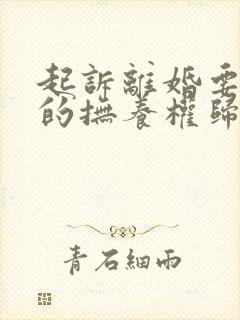 起訴離婚要
的撫養權歸
青石細雨